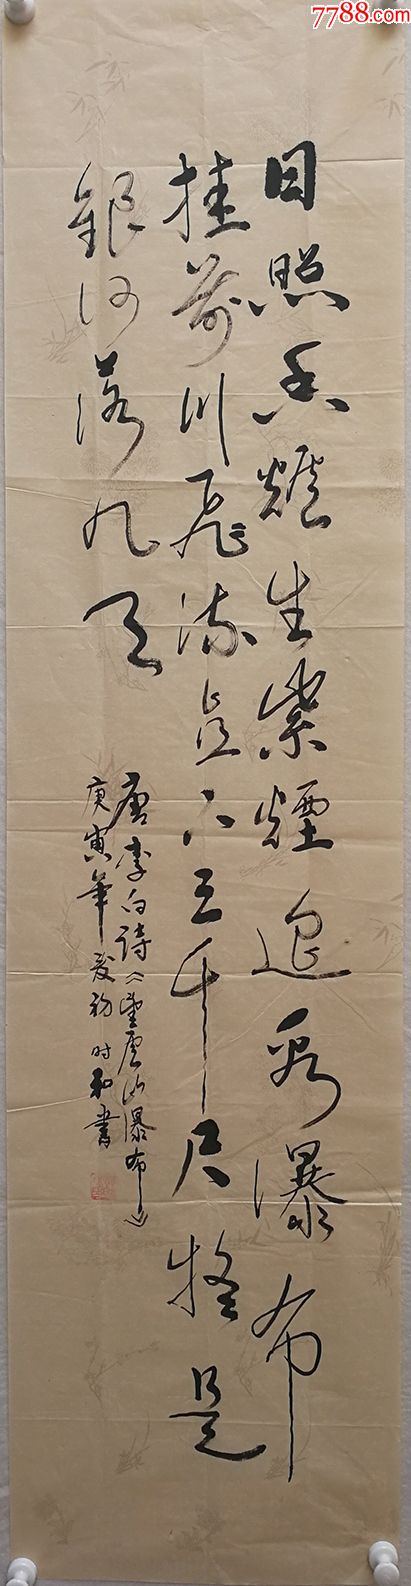 7788.com
日照香爐生紫煙遥看瀑布
挂前川飛流直下三千尺疑是
銀河落九天
唐李白詩《望廬山瀑布》
庚寅年夏初时和書